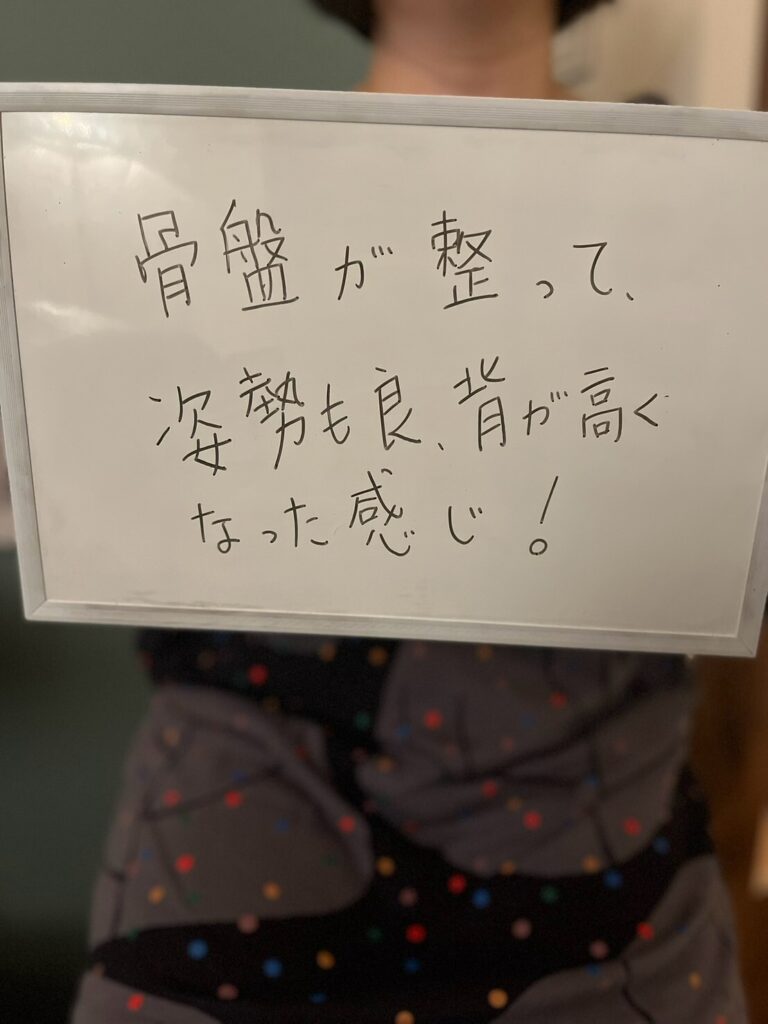 骨盤が整って、
姿勢も良、背が高く
なった感じ!